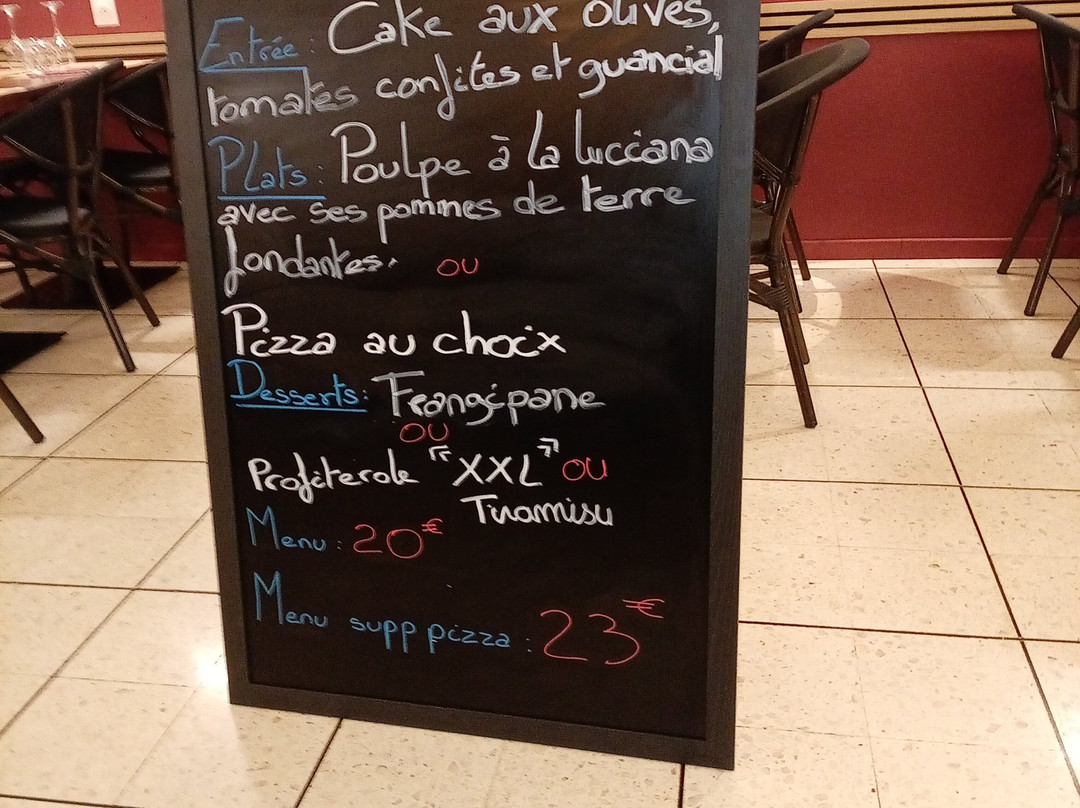 Entrée : Cake aux olives,
tomates confites et guancial
Plats : Poulpe à la lucciana
avec ses pommes de terre
fondantes. ou
Pizza au choix
Desserts : Frangipane
ou
Profiterole "XXL" ou
Tiramisu
Menu : 20€
Menu supp pizza : 23€